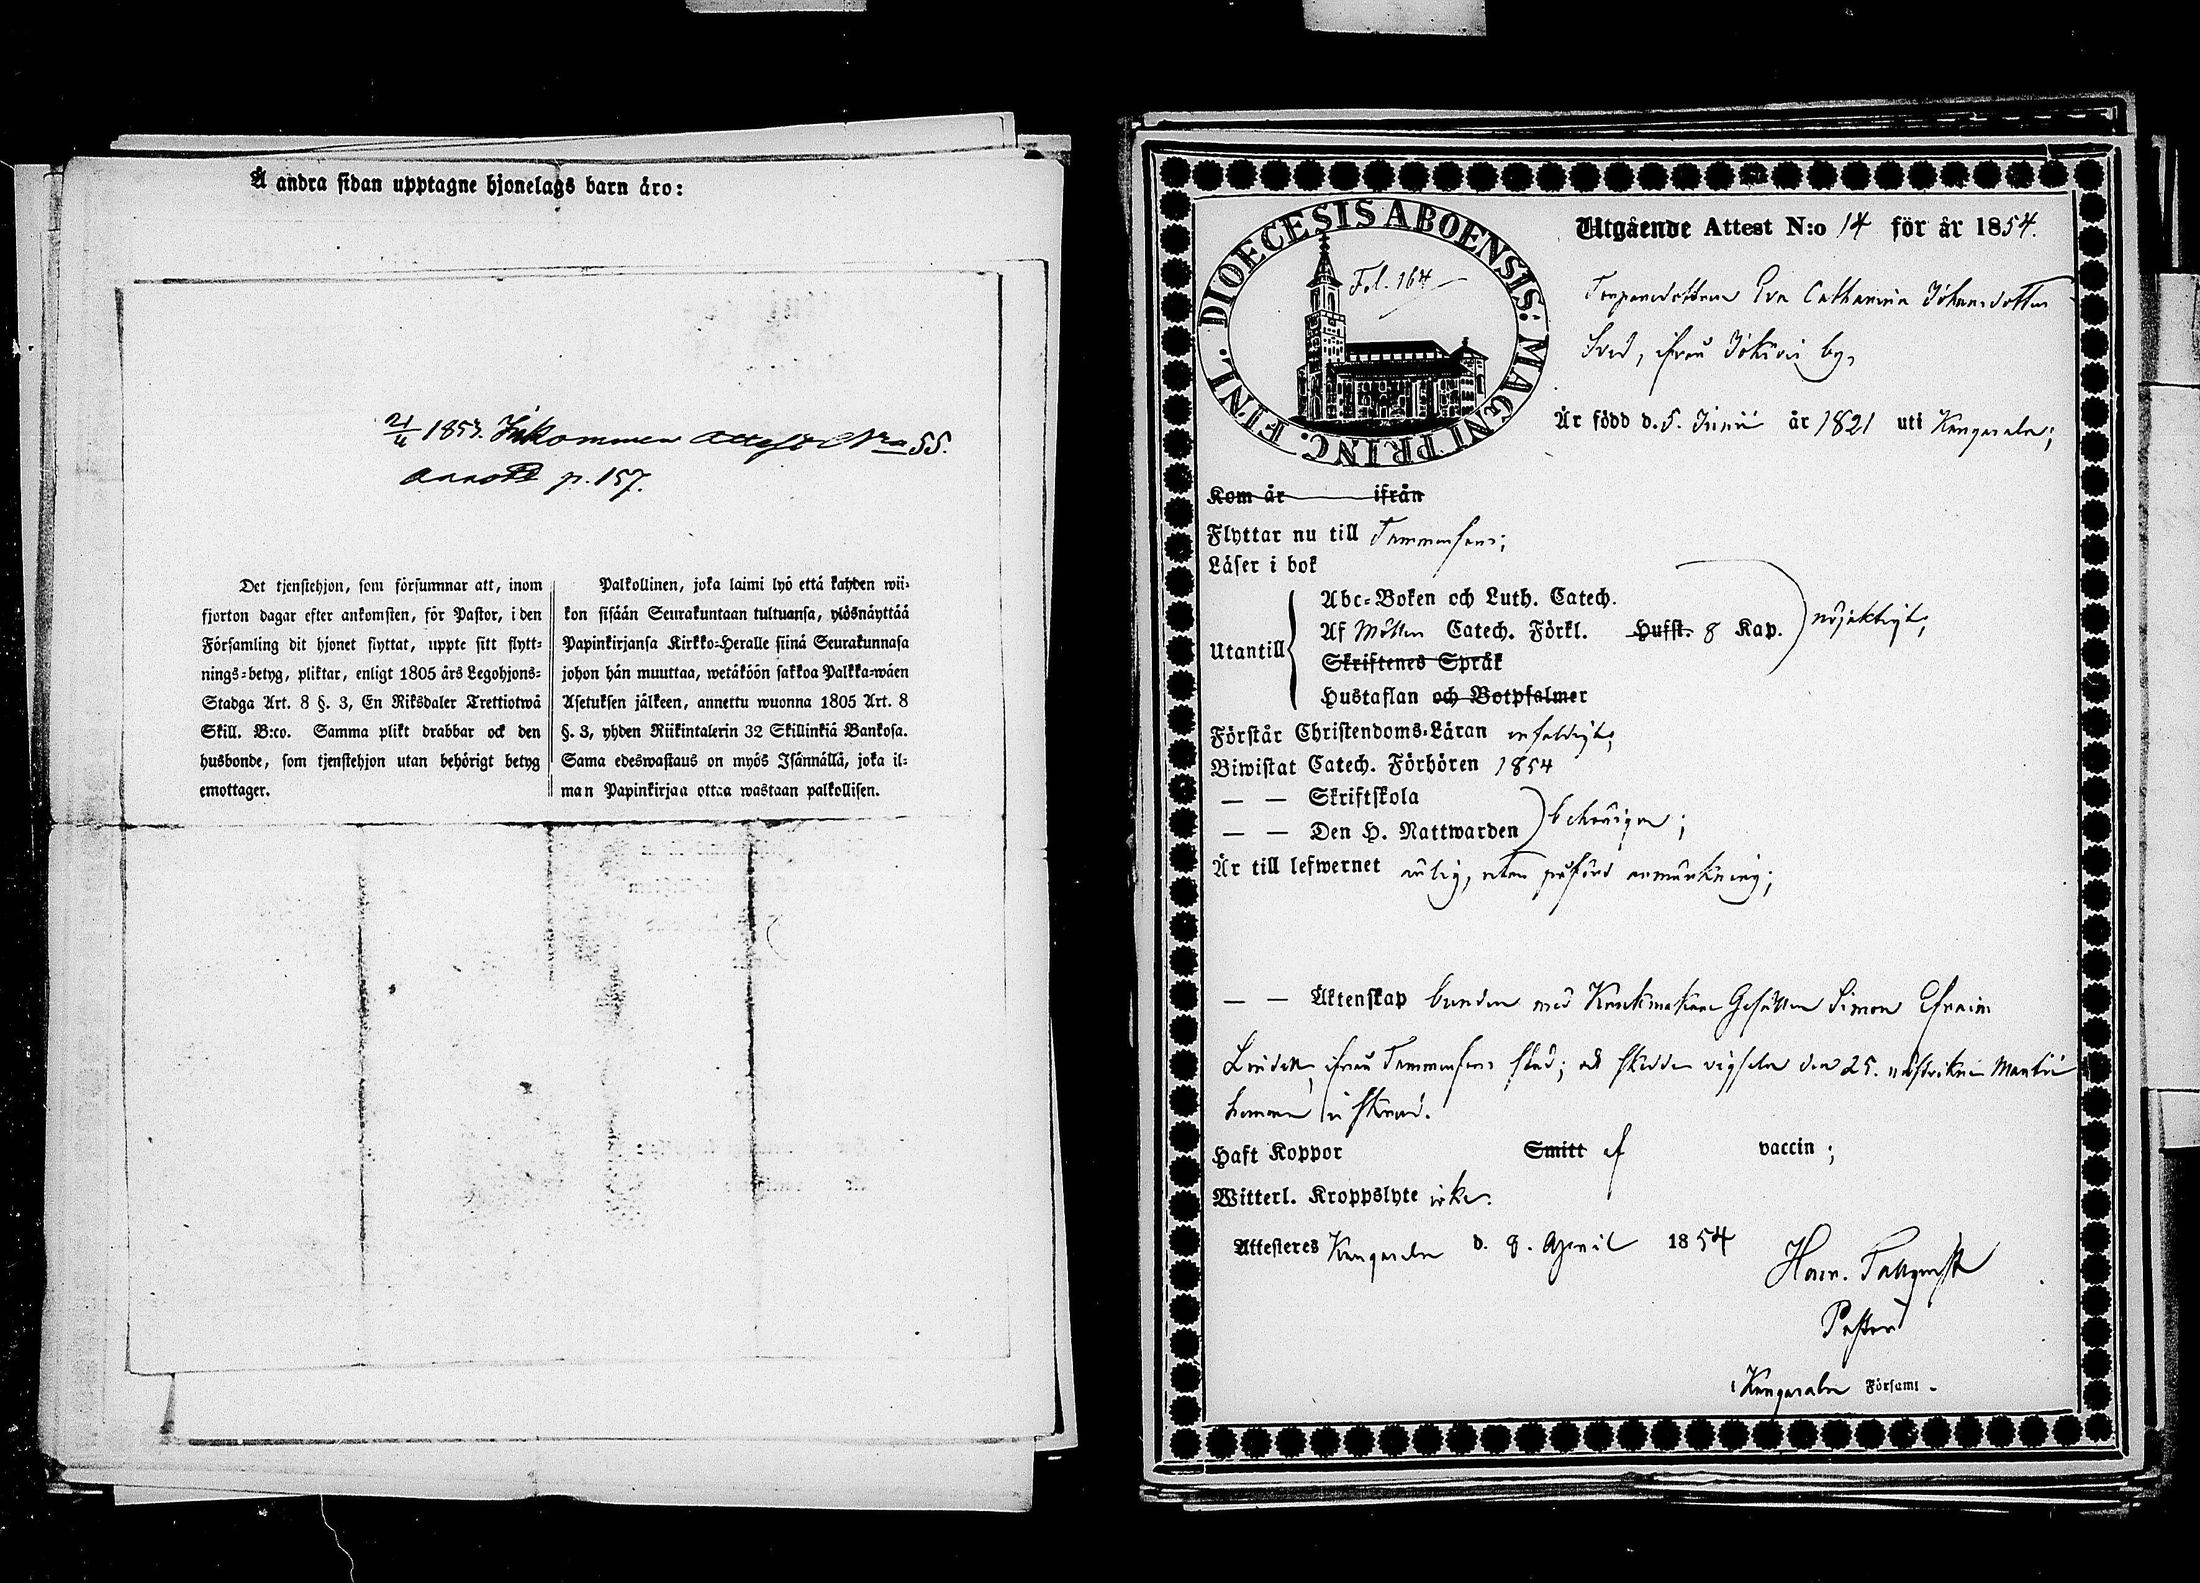 Å andra sidan upptagne hjonelags barn äro:
21/4 1853. Inkommen attest No 55.
Annot p. 157.
Det tjenstehjon, som försummar att, inom
fjorton dagar efter ankomsten, för Pastor, i den
Församling dit hjonet flyttat, uppte sitt flytt-
nings-betyg, pliktar, enligt 1805 års Legohjons-
Stadga Art. 8 §. 3, En Riksdaler Trettiotwå
Skill. B:co. Samma plikt drabbar ock den
husbonde, som tjenstehjon utan behörigt betyg
emottager.
Palkollinen, joka laimi lyö että kahden wii-
kon sisään Seurakuntaan tultuansa, ylösnäyttää
Papinkirjansa Kirkko-Heralle siinä Seurakunnasa
johon hän muuttaa, wetäköön sakkoa Palkka-wäen
Asetuksen jälkeen, annettu wuonna 1805 Art. 8
§. 3, yhden Riikintalerin 32 Skillinkiä Bankosa.
Sama edeswastaus on myös Isännällä, joka il-
man Papinkirjaa ottaa wastaan palkollisen.
DIOECESIS ABOENSIS: MAGNI PRINC. FINL.
Fol. 164
Utgående Attest N:o 14 för år 1854.
Torparedottren Eva Catharina Johansdotter
ifrån by,
Är född d. 5. Junii år 1821 uti Kangasala;
Kom år ifrån
Flyttar nu till Tammerfors;
Läser i bok
Utantill
Abc-Boken och Luth. Catech.
Af Möllers Catech. Förkl. Hufst. 8 Kap. nöjaktigt;
Skriftenes Språk
Hustaflan och Botpsalmer
Förstår Christendoms-Läran enfaldigt;
Biwistat Catech. Förhören 1854
— — Skriftskola
— — Den H. Nattwarden behörigen;
Är till lefwernet ärlig, utan påförd anmärkning;
— — Äktenskap bunden med Kruk­makare Gesällen Simon Efraim
Lindell, ifrån Tammerfors stad; och skedde vigseln den 25. Martii
Haft Koppor Smitt af vaccin;
Witterl. Kroppslyte icke.
Attesteres Kangasala d. 8. April 1854
Pastor
i Kangasala Församl.